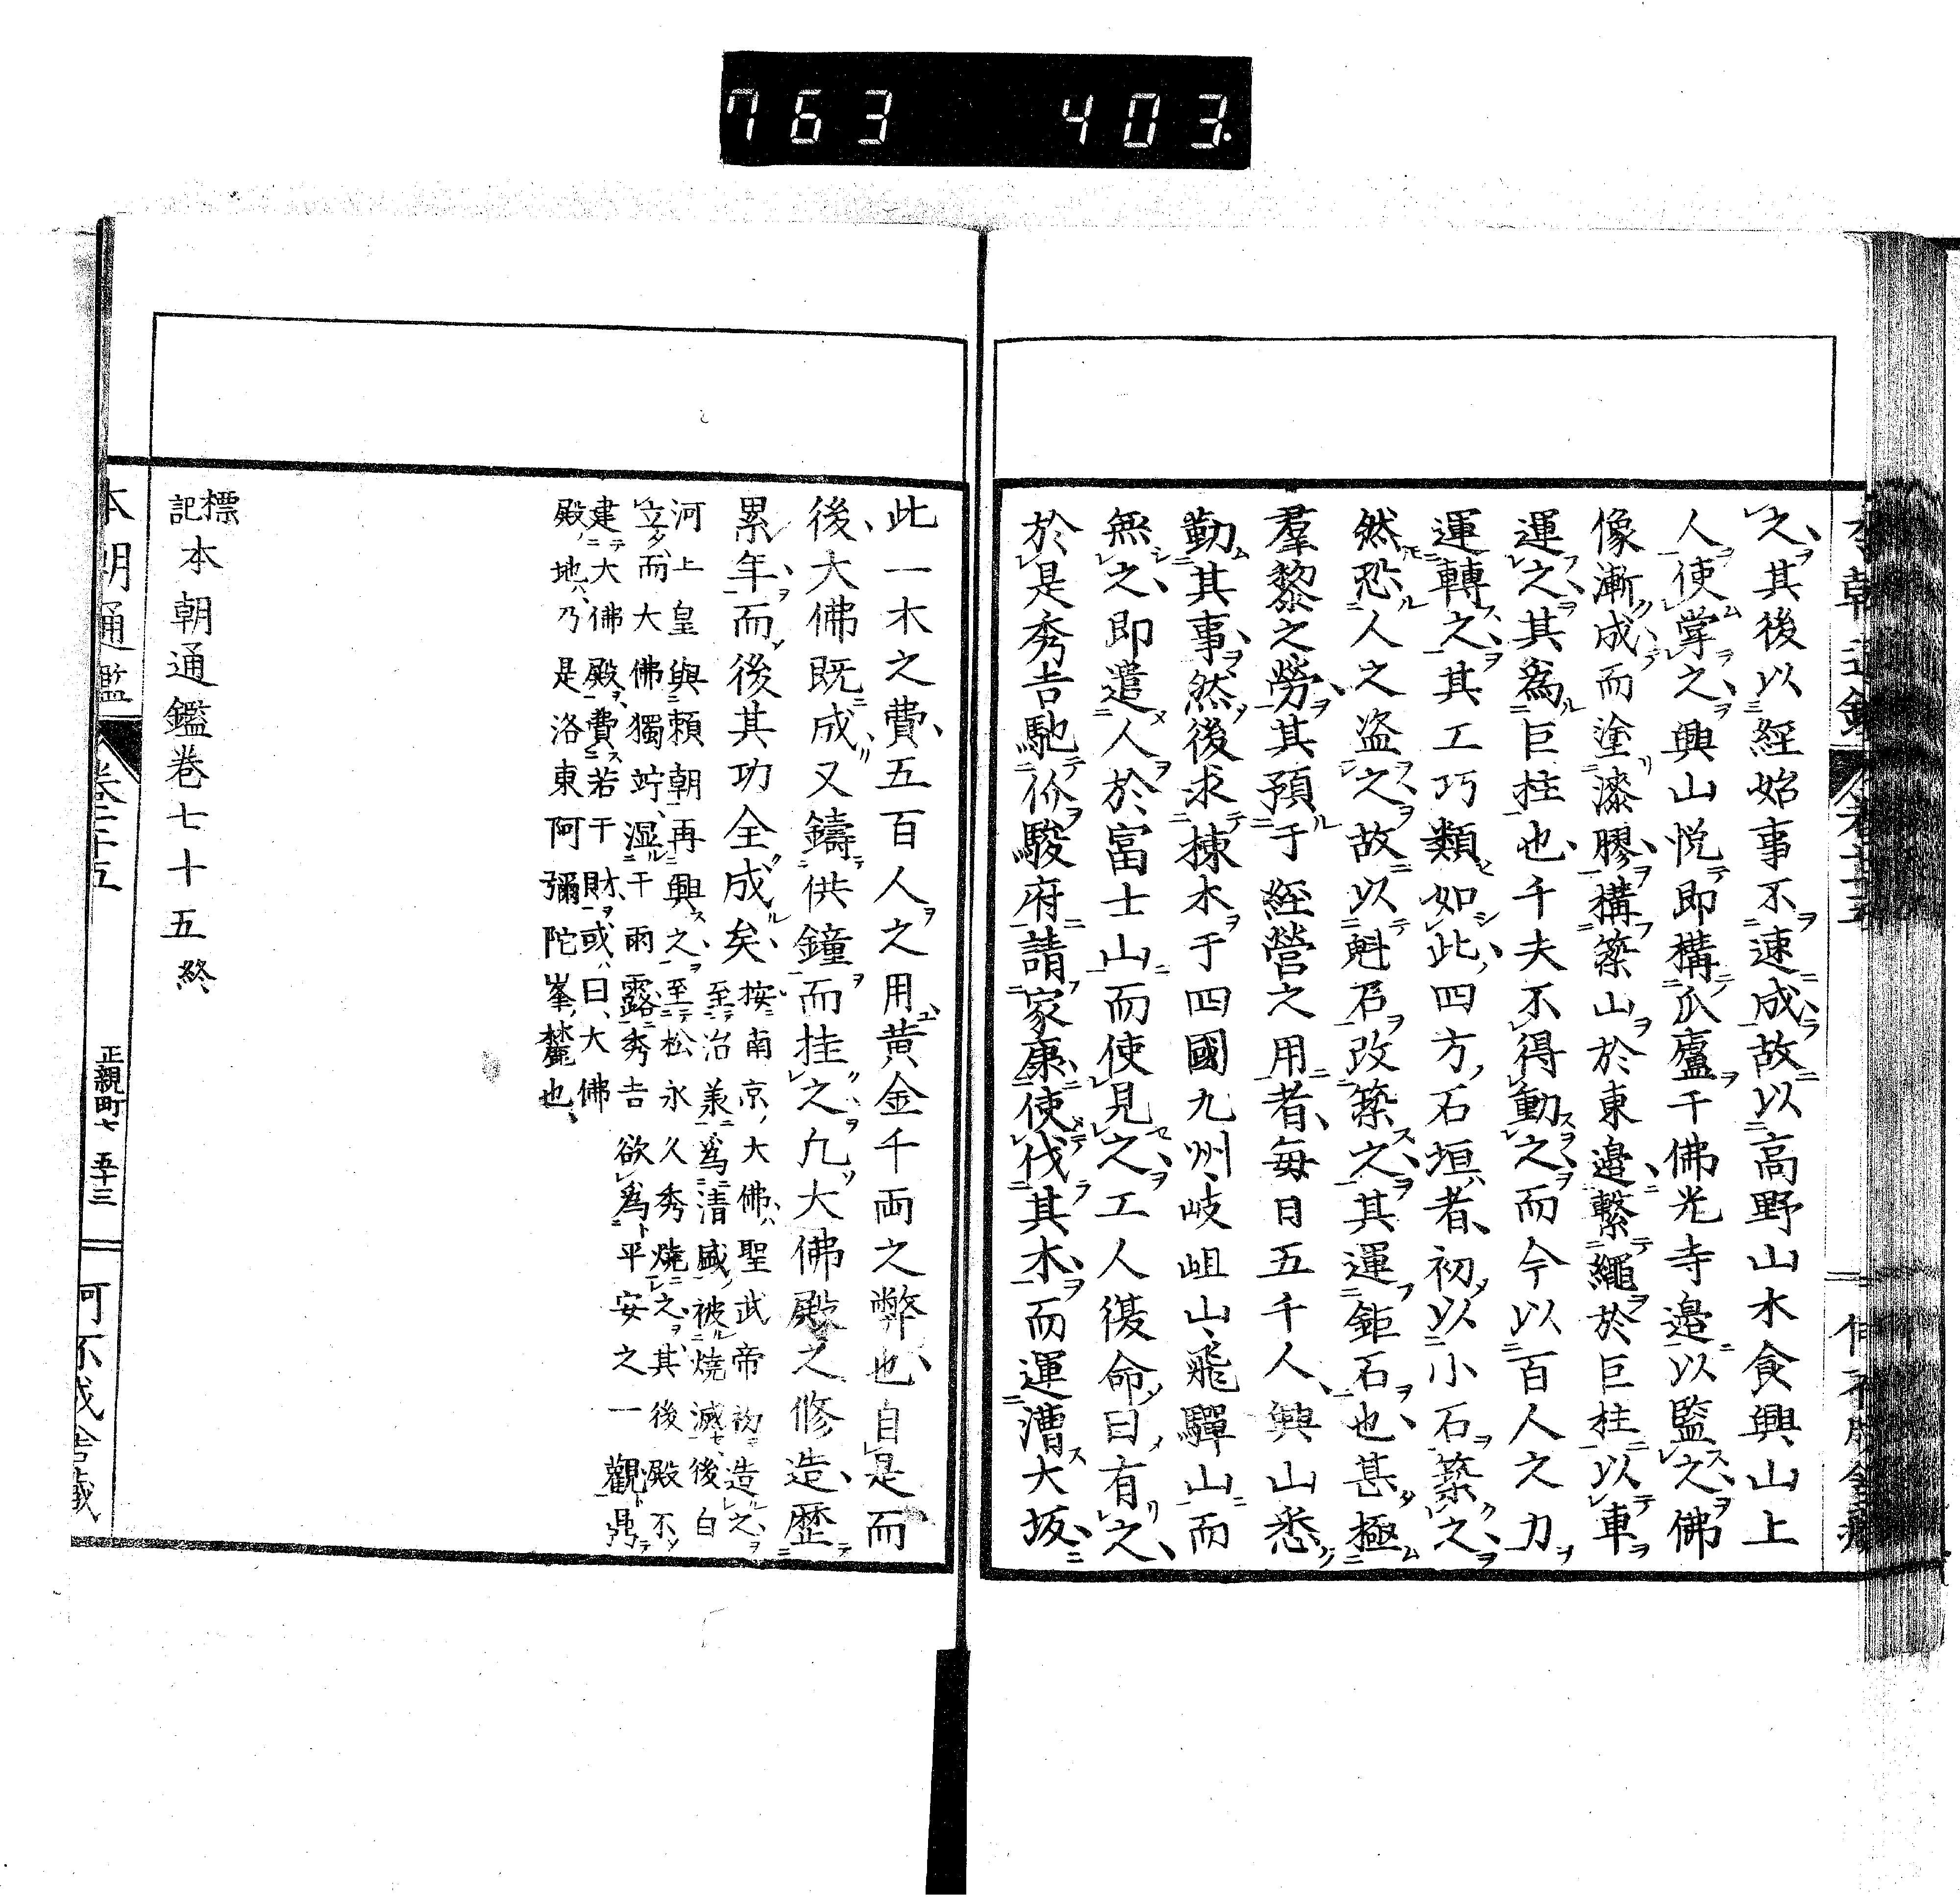 763 403.
之其後以經始事不速成故以高野山木食興山上
人使掌之興山悦即構瓜廬千佛光寺邉以監之佛
像漸成而塗漆膠構築山於東邉繋繩於巨柱以車
運之其爲巨拄也千夫不得動之而今以百人之力
運轉之其工巧類如此四方石垣者初以小石築之
然恐人之盗之故以魁石改築之其運鉅石也甚極
羣黎之勞其預于經營之用者毎日五千人興山悉
勤其事然後求棟木于四國九州岐岨山飛驒山而
無之即遣人於富士山而使見之工人復命曰有之
於是秀吉馳价駿府請家康使伐其木而運漕大坂
此一木之費五百人之用黄金千両之弊也自是而
後大佛既成又鑄供鐘而挂之凢大佛殿之修造歴
累年而後其功全成矣按南京大佛聖武帝初造之
至治兼爲清盛被燒滅後白
河上皇與頼朝再興之至松永久秀燒之其後殿不
立而大佛獨竚湿干雨露秀吉欲爲平安之一觀
建大佛殿費若干財或曰大佛
殿地乃是洛東阿彌陀峯麓也
標記本朝通鑑巻七十五終
本朝通鑑 巻七十五 正親町七 五十三